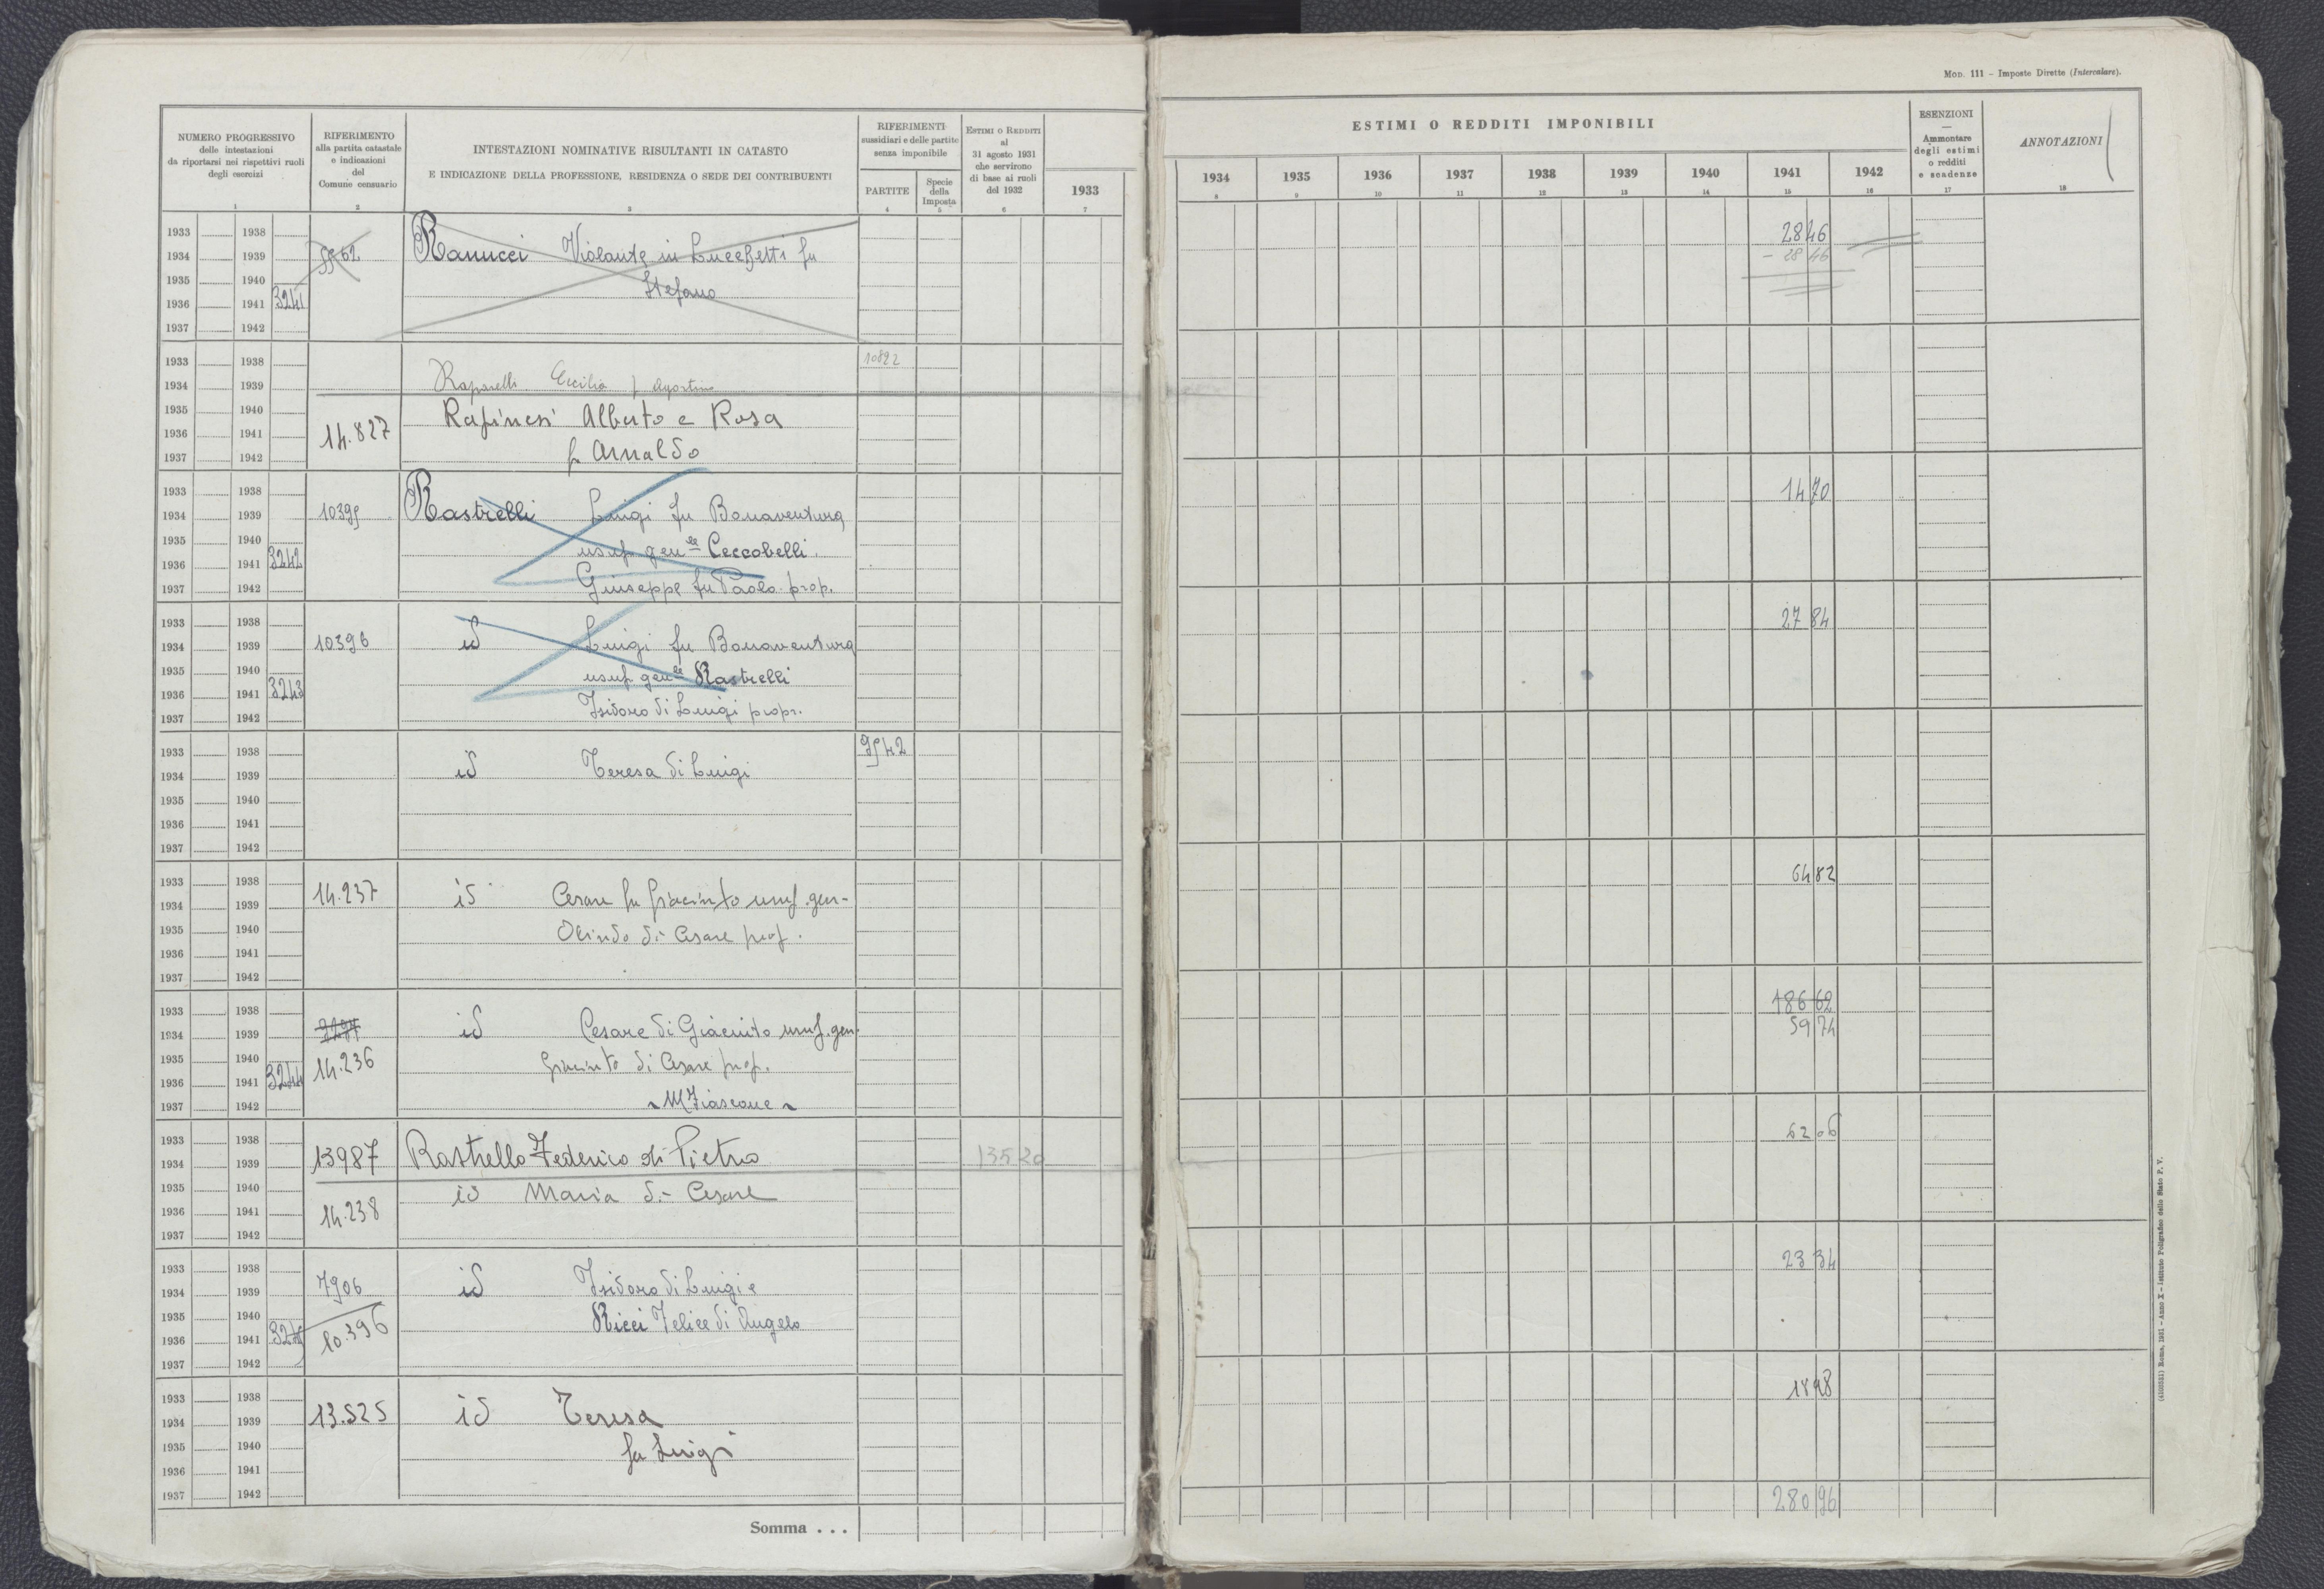 Mod. 111 – Imposte Dirette (Intercalare).
NUMERO PROGRESSIVO
delle intestazioni
da riportarsi nei rispettivi ruoli
degli esercizi
1
RIFERIMENTO
alla partita catastale
e indicazioni
del
Comune censuario
2
INTESTAZIONI NOMINATIVE RISULTANTI IN CATASTO
E INDICAZIONE DELLA PROFESSIONE, RESIDENZA O SEDE DEI CONTRIBUENTI
3
RIFERIMENTI
sussidiari e delle partite
senza imponibile
PARTITE
4
Specie
della
Imposta
5
Estimi o Redditi
al
31 agosto 1931
che servirono
di base ai ruoli
del 1932
6
1933
7
ESTIMI O REDDITI IMPONIBILI
1934 1935 1936 1937 1938 1939 1940 1941 1942
8 9 10 11 12 13 14 15 16
ESENZIONI
—
Ammontare
degli estimi
o redditi
e scadenze
17
ANNOTAZIONI
18
1933 1938 2846
1934 1939 Ranucci Violante in Lucchetti fu - 28 46
1935 1940 Stefano
1936 1941 3241
1937 1942
1933 1938 10892
1934 1939 Raparelli Cecilia f Agostino
1935 1940 Rapinesi Alberto e Rosa
1936 1941 14.827
1937 1942 fu Arnaldo
1933 1938 1470
1934 1939 10395 Rastrelli Luigi fu Bonaventura
1935 1940 usuf genle Ceccobelli
1936 1941 3242
1937 1942 Giuseppe fu Paolo prop.
1933 1938 27 84
1934 1939 10396 id Luigi fu Bonaventura
1935 1940 usuf genle Rastrelli
1936 1941 3243
1937 1942 Isidoro di Luigi propr.
1933 1938 9542
1934 1939 id Teresa di Luigi
1935 1940
1936 1941
1937 1942
1933 1938 14.237 id Cesare fu Giacinto usuf. gen- 6482
1934 1939
1935 1940 Olindo di Cesare prop.
1936 1941
1937 1942
1933 1938 186 62
1934 1939 id Cesare di Giacinto usuf. gen. 59 74
1935 1940 14.236 Giacinto di Cesare prop.
1936 1941 3244
1937 1942 ~ M Fiascone ~
1933 1938 62 06
1934 1939 13987 Rastrello Federico di Pietro 135 20
1935 1940 id Maria di Cesare
1936 1941 14.238
1937 1942
1933 1938 23 34
1934 1939 7906 id Isidoro di Luigi e
1935 1940 Ricci Felice di Angelo
1936 1941 3245 10.396
1937 1942
1933 1938 1898
1934 1939 13.525 id Teresa
1935 1940 fu Luigi
1936 1941
1937 1942
Somma . . . 280 96
(4100521) Roma, 1931 – Anno X – Istituto Poligrafico dello Stato P. V.